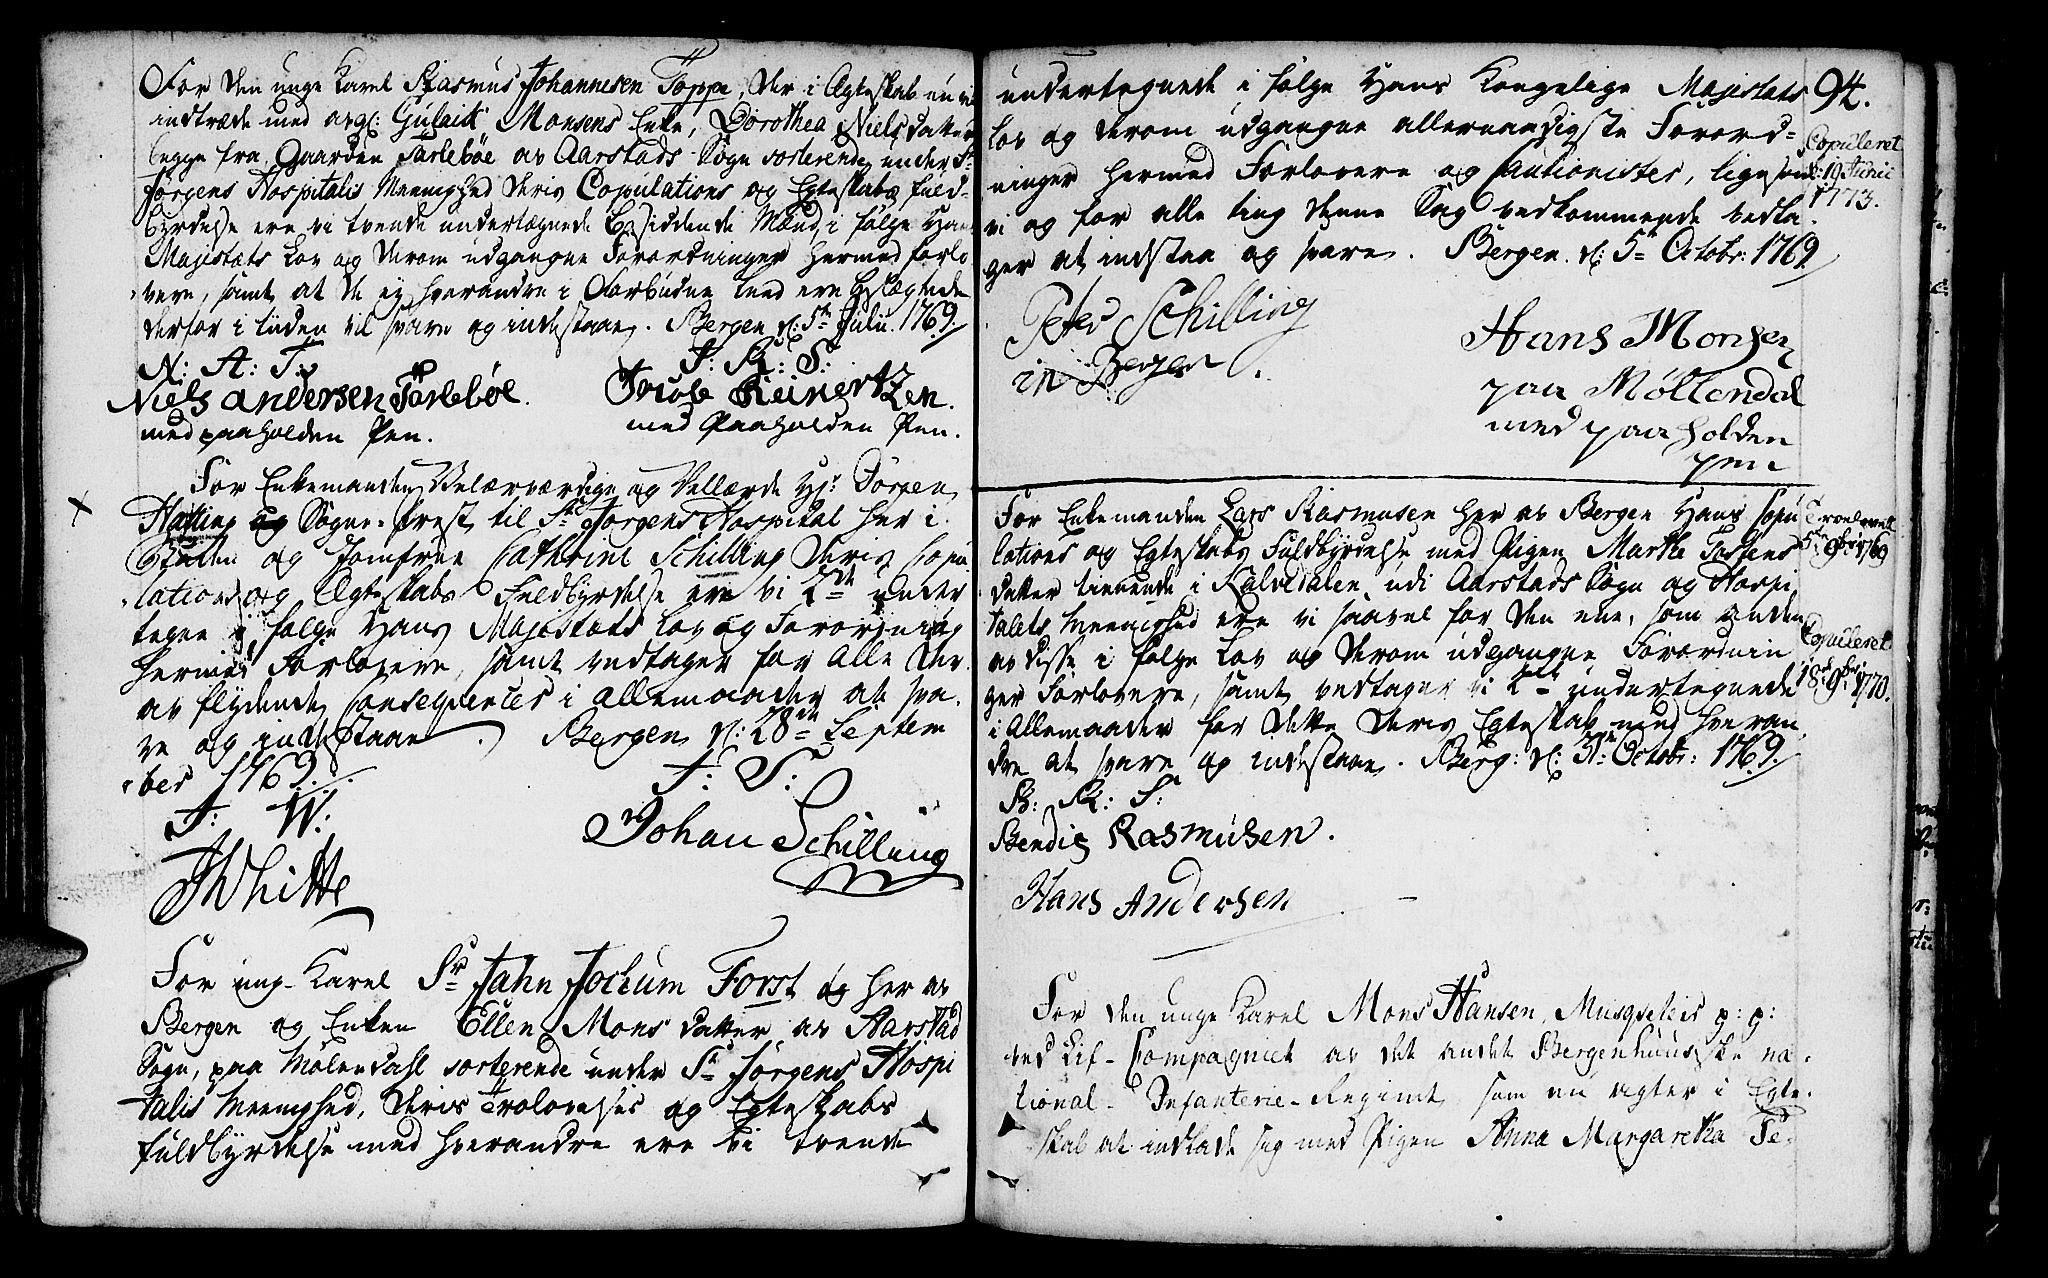 For den unge Karl Rasmus Johannesen Toppe, der i Ægteskab nu vil
indtræde med avgl: Gulaick Monsens Enke, Dorothea Nielsdatter
begge fra Gaarden Tarlebøe av Aarstads Sogn sorterende under St
Jørgens Hospitals Meenighed deris Copulations og Egteskabs fuld-
byrdelse ere vi tvende undertægnede Besiddende Mænd, i følge Hans
Majestæts Lov og derom udgangne Forordninger hermed forlo
vere, samt at de ej hverandre i Forbudne leed ere beslægtede
derfor i tiiden vil svare og indestaae. Bergen d: 5te Julii 1769
N: A: T:
Niels andersen Tarlebøe.
med paaholden Pen.
J: R: S:
Jacob Reinertzen.
med Paaholden Pen.
For Enkemanden Velærværdige og Vellærde Hr Jørgen
Hatting og Sogne-Prest til St Jørgens Hospital her i
Staden og Jomfrue Cathrine Schilling deris Copu
lations og Ægteskabs Fuldbyrdelse ere vi 2de under
tegne i følge Hans Majestæts Lov og Forordning
hermed Forlovere, samt vedtager for Alle der
av flydende Consequences i allemaader at sva-
re og indestaae. Bergen d: 28de Septem
ber 1769.
J: W:
JWhitte
J: S:
Johan Schilling
For ung-Karl Sr Jahn Jochum Forst og her av
Bergen og Enken Ellen Mons datter av Aarstad
Sogn, paa Mølendahl sorterende under St Jørgens Hospi
talis Meenighed, deris Trolovelses og Egteskabs
fuldbyrdelse med hverandre ere vi tvende
94.
undertegnede i følge Hans Kongelige Majestæts
lov og derom udgangne allernaadigste Forord-
ninger hermed Forlovere og Cautionister, ligesom
vi og for alle ting denne Sag vedkommende vedta-
ger at indstaa og svare. Bergen d: 5te Octobr: 1769
Copuleret
d: 19 Junii
1773.
Peter Schilling
in Bergen.
Hans Monsen
paa Møllendal
med paa holden
pen
For Enkemanden Lars Rasmusen her av Bergen Hans Copu
lations og Egteskabs Fuldbyrdelse med Pigen Marthe Tostens
datter tienende i Kalvedalen udi Aarstads Sogn og Hospi
talets Meenighed ere vi saavel for den ene, som anden
av disse i følge Lov og derom udgangne Forordnin
ger Forlovere, samt vedtager vi 2de undertegnede
i Allemaader for dette deris Egteskab med hveran
dre at svare og indestaae. Berg: d: 31te Octobr: 1769.
Troelovet
9br 1769
Copuleret
18de 9br 1770.
B: R: S:
Bendix Rasmusen.
Hans Andersen
For den unge Karl Mons Hansen, Musqueteer p: p:
ved Lif-Compagniet av det andet Bergenhuuske na-
tional-Infanterie-Regimt som nu agter i Egte-
skab at indlade sig med Pigen Anna Margaretha Te-